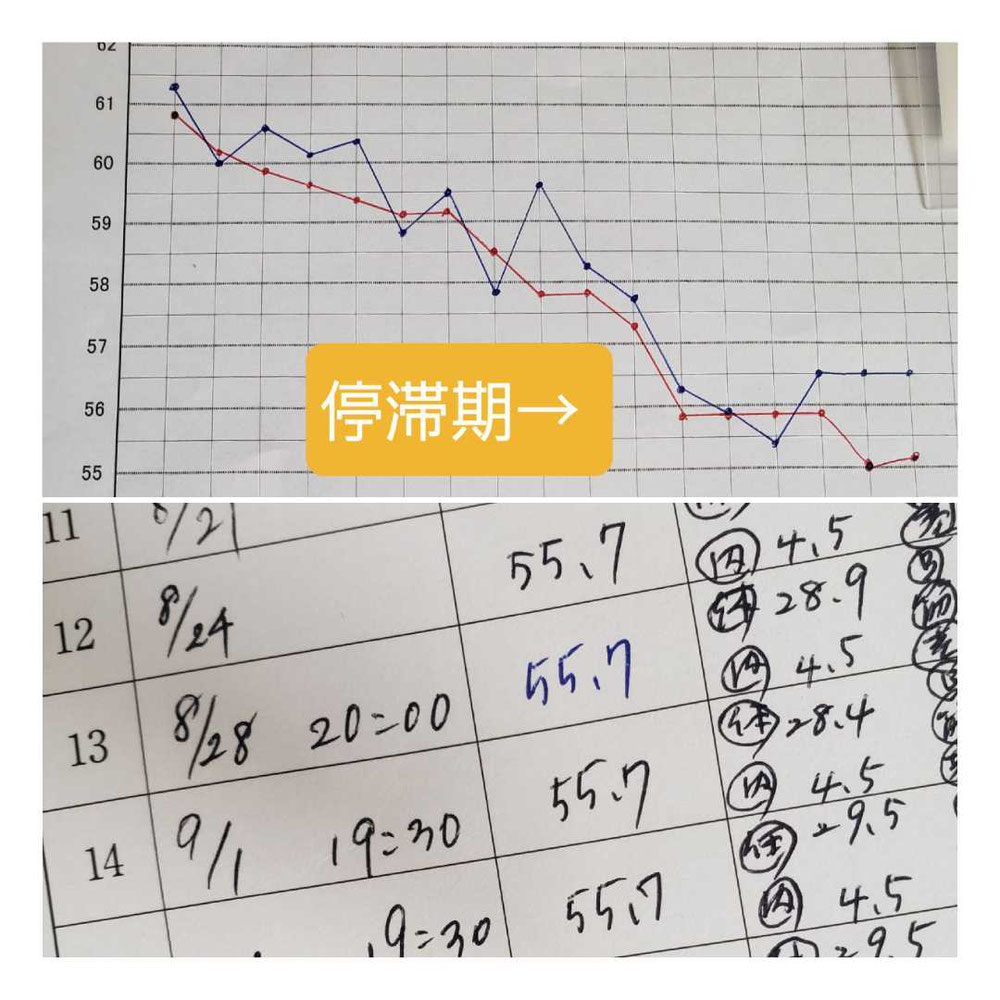 62
61
60
59
58
57
56
55
停滞期→
11 8/21 55.7 内 4.5
12 8/24 体 28.9
55.7 内 4.5
13 8/28 20:00 体 28.4
55.7 内 4.5
14 9/1 19:30 体 29.5
55.7 内 4.5
19:30 29.5